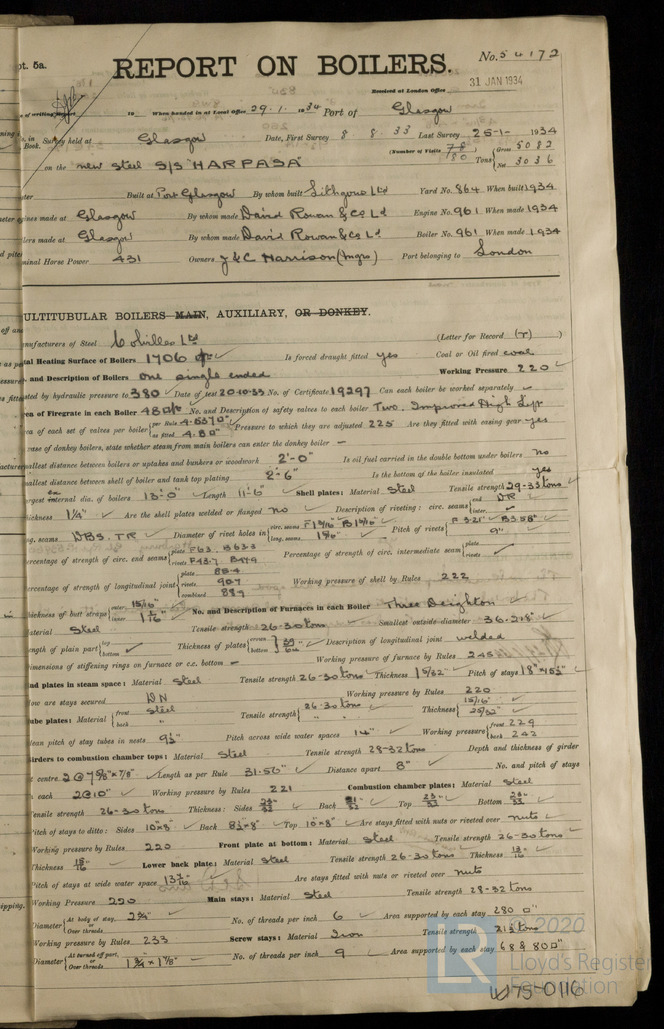 pt. 5a.
REPORT ON BOILERS.
No. 54172
Received at London Office
31 JAN 1934
of writing Report 19 When handed in at Local Office 29.1.1934 Port of Glasgow
in Survey held at Glasgow Date, First Survey 8 8 33 Last Survey 25-1- 1934
Book.
on the new Steel S/S "HARPASA" (Number of Visits 180) Tons Gross 5082 Net 3036
Built at Port Glasgow By whom built Lithgows Ltd Yard No. 864 When built 1934
ines made at Glasgow By whom made David Rowan & Co Ld Engine No. 961 When made 1934
lers made at Glasgow By whom made David Rowan & Co Ld Boiler No. 961 When made 1934
minal Horse Power 431 Owners J & C Harrison (Mgrs) Port belonging to London
ULTITUBULAR BOILERS MAIN, AUXILIARY, OR DONKEY.
anufacturers of Steel Colvilles Ltd (Letter for Record (r) )
tal Heating Surface of Boilers 1706 Is forced draught fitted yes Coal or Oil fired coal
and Description of Boilers one single ended Working Pressure 220
ted by hydraulic pressure to 380 Date of test 20-10-33 No. of Certificate 19297 Can each boiler be worked separately
ea of Firegrate in each Boiler 48 No. and Description of safety valves to each boiler Two, Improved High Lift
ea of each set of valves per boiler per Rule as fitted 4.80 Pressure to which they are adjusted 225 Are they fitted with easing gear yes
case of donkey boilers, state whether steam from main boilers can enter the donkey boiler –
allest distance between boilers or uptakes and bunkers or woodwork 2'-0" Is oil fuel carried in the double bottom under boilers no
allest distance between shell of boiler and tank top plating 2'-6" Is the bottom of the boiler insulated yes
argest internal dia. of boilers 13'-0" Length 11'-6" Shell plates: Material Steel Tensile strength 29-33 tons
hickness 1¼" Are the shell plates welded or flanged no Description of riveting: circ. seams end DR
g. seams DBS. TR Diameter of rivet holes in circ. seams long. seams Pitch of rivets F 3.21" B 3.58" 9"
ercentage of strength of circ. end seams plate F 63. B 63.3 rivets F 43.7 B 44.9 Percentage of strength of circ. intermediate seam plate rivets
ercentage of strength of longitudinal joint plate 85.4 rivets 90.7 combined 88.9 Working pressure of shell by Rules 222
hickness of butt straps outer 15/16" inner 1 1/16" No. and Description of Furnaces in each Boiler Three Deighton
aterial Steel Tensile strength 26-30 tons Smallest outside diameter 36.218"
ngth of plain part top bottom Thickness of plates crown bottom Description of longitudinal joint welded
imensions of stiffening rings on furnace or c.c. bottom – Working pressure of furnace by Rules 245
nd plates in steam space: Material Steel Tensile strength 26-30 tons Thickness 15/32" Pitch of stays 18" × 15½"
ow are stays secured DN Working pressure by Rules 220
ube plates: Material front back Steel " Tensile strength 26-30 tons " Thickness 15/16" 25/32"
ean pitch of stay tubes in nests 9½" Pitch across wide water spaces 14" Working pressure front 229 back 242
irders to combustion chamber tops: Material Steel Tensile strength 28-32 tons Depth and thickness of girder
t centre 2@7⅝" × ⅞" Length as per Rule 31.56" Distance apart 8" No. and pitch of stays
n each 2@10" Working pressure by Rules 221 Combustion chamber plates: Material Steel
ensile strength 26-30 tons Thickness: Sides Back Top Bottom
itch of stays to ditto: Sides 10" × 8" Back 8½" × 8" Top 10" × 8" Are stays fitted with nuts or riveted over nuts
Working pressure by Rules 220 Front plate at bottom: Material Steel Tensile strength 26-30 tons
Thickness 15/16" Lower back plate: Material Steel Tensile strength 26-30 tons Thickness 13/16"
Pitch of stays at wide water space 13 7/16" Are stays fitted with nuts or riveted over nuts
Working Pressure 220 Main stays: Material Steel Tensile strength 28-32 tons
Diameter At body of stay, or Over threads 2¾" No. of threads per inch 6 Area supported by each stay 280
Working pressure by Rules 233 Screw stays: Material Iron Tensile strength 21½ tons
Diameter At turned off part, or Over threads 1¾" × 1⅞" No. of threads per inch 9 Area supported by each stay 68 & 80
© 2020
LR Lloyd's Register Foundation
W175-0116